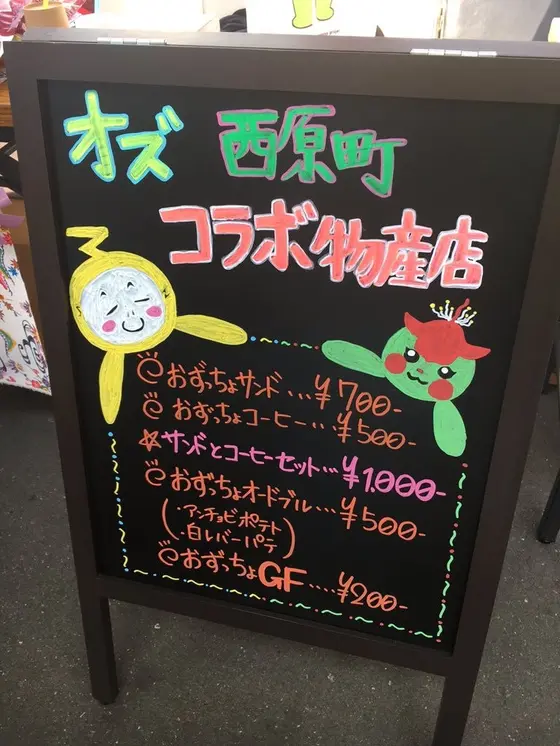 オズ 西原町
コラボ物産店
おずっちょサンド…¥700-
おずっちょコーヒー…¥500-
☆サンドとコーヒーセット…¥1.000-
おずっちょオードブル…¥500-
(・アンチョビポテト
・白レバーパテ)
おずっちょGF....¥200-